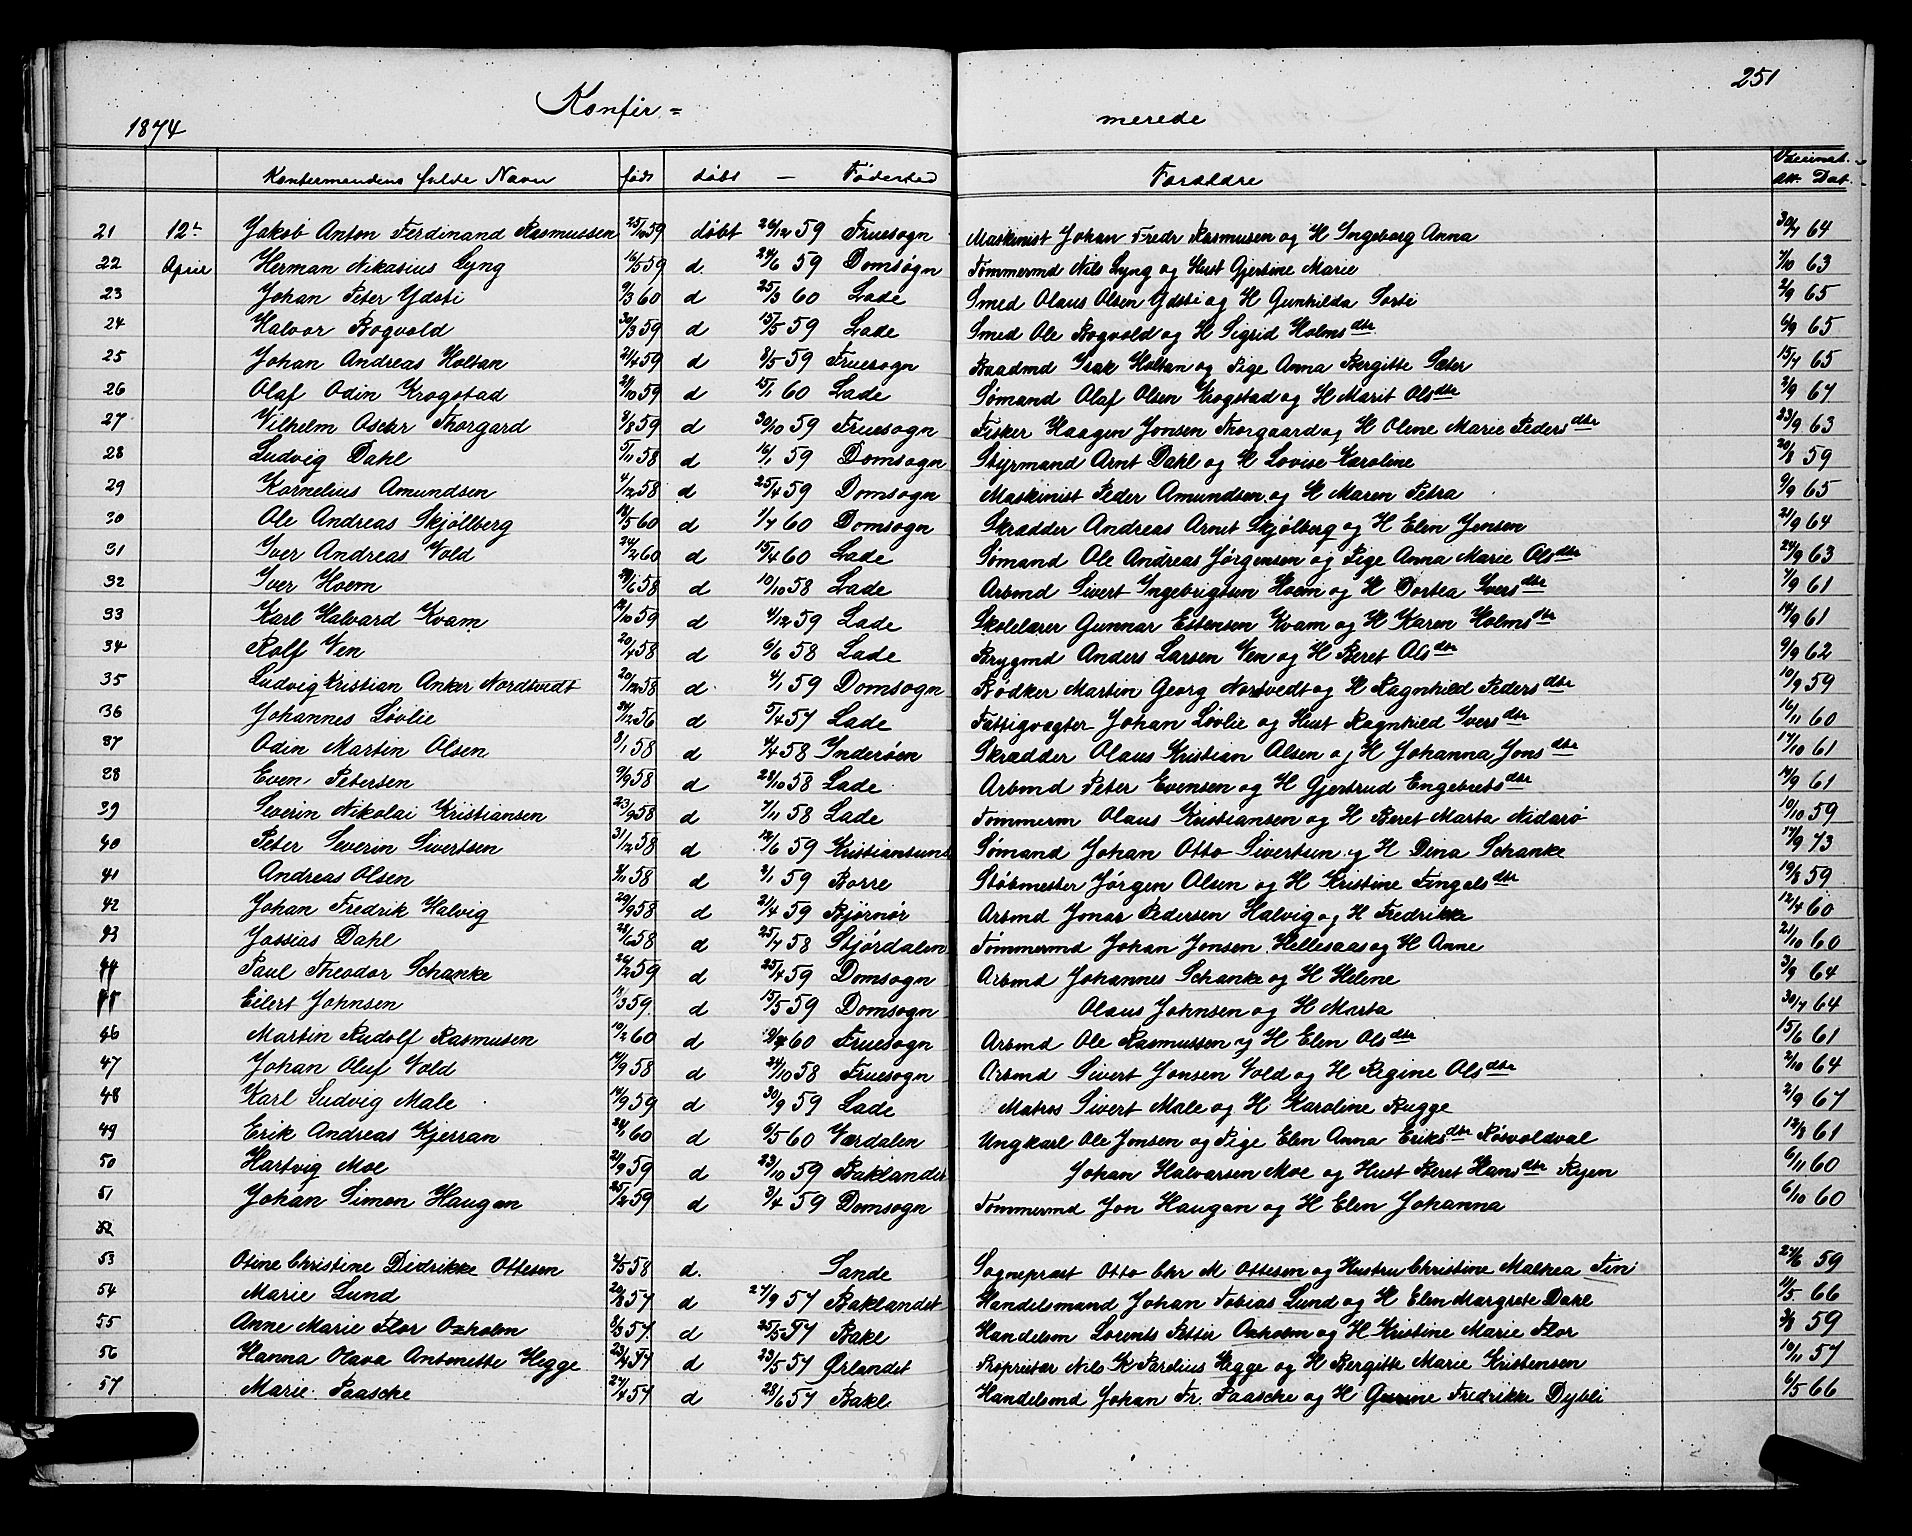 251
Konfir =
merede
1874
Konfirmandens fulde Navn født døbt — Fødested Forældre Vaccinat. Att. Dat.
21 12te Jakob Anton Ferdinand Rasmussen 59 døbt 26/12 59 Fruesogn Maskinist Johan Fredr Rasmusen og H Ingeborg Anna 30/7 64
22 April Herman Nikasius Lyng 16/5 59 d. 24/6 59 Domsogn Tømmermd Nils Lyng og Hust Gjertine Marie 7/10 63
23 Johan Peter Ydsti 9/3 60 d 25/3 60 Lade Smed Olaus Olsen Ydsti og H Gunhilda Sorti 2/9 65
24 Halvor Rogvold 30/3 59 d 15/5 59 Lade Smed Ole Rogvold og H Sigrid Holmsdtr 6/9 65
25 Johan Andreas Holtan 21/4 59 d 8/5 59 Fruesogn Baadmd Isak Holtan og Pige Anna Bergitte Sæter 15/7 65
26 Olaf Odin Krogstad 21/10 59 d 15/1 60 Lade Sømand Olaf Olsen Krogstad og H Marit Olsdtr 2/9 67
27 Vilhelm Oskar Thorgard 8/8 59 d 30/10 59 Fruesogn Fisker Haagen Jonsen Thorgaard og H Oline Marie Pedersdtr 23/9 63
28 Ludvig Dahl 5/11 58 d 16/1 59 Domsogn Styrmand Arnt Dahl og H Lovise Karoline 20/8 59
29 Kornelius Amundsen 4/12 58 d 25/4 59 Domsogn Maskinist Peder Amundsen og H Maren Petra 9/9 65
30 Ole Andreas Skjøllberg 14/5 60 d 1/7 60 Domsogn Skradder Andreas Arnt Skjølberg og H Elen Jensen 21/9 64
31 Iver Andreas Vold 24/2 60 d 15/4 60 Lade Sømand Ole Andreas Jørgensen og Pige Anna Marie Olsdtr 24/9 63
32 Iver Hoem 58 d 10/10 58 Lade Arbmd Sivert Ingebrigtsen Hoem og H Dortea Iversdtr 7/9 61
33 Karl Halvard Kvam 12/10 59 d 4/12 59 Lade Skolelærer Gunnar Estensen Kvam og H Karen Holmsdtr 14/9 61
34 Rolf Ven 20/4 58 d 6/6 58 Lade Brygmd Anders Larsen Ven og H Beret Olsdtr 9/9 62
35 Ludvig Kristian Anker Nordtvedt 20/12 58 d. 4/1 59 Domsogn Bødker Martin Georg Nortvedt og H Ragnhild Pedersdtr 10/9 59
36 Johannes Løvlie 24/12 56 d 5/4 57 Lade Fattigvogter Johan Løvlie og Hust Ragnhild Iversdtr 16/11 60
37 Odin Martin Olsen 3/1 58 d 4/4 58 Inderøen Skrædder Olaus Kristian Olsen og H Johanna Jonsdtr 17/10 61
38 Even Petersen 9/9 58 d 28/10 58 Lade Arbmd Peter Evensen og H Gjertrud Engebretsdtr 14/9 61
39 Severin Nikolai Kristiansen 23/9 58 d 7/11 58 Lade Tømmerm Olaus Kristiansen og H Beret Marta Nidarø 10/10 59
40 Peter Severin Sivertsen 31/12 58 d 12/6 59 Kristiansund Sømand Johan Otto Sivertsen og H Dina Schanke 17/9 73
41 Andreas Olsen 8/11 58 d 2/1 59 Borre Støbmester Jørgen Olsen og H Kristine Fingalsdtr 19/8 59
42 Johan Fredrik Halvig 29/9 58 d 21/4 59 Bjørnør Arbmd Jonas Pedersen Halvig og H Fredrikke 12/4 60
43 Jossias Dahl 28/6 58 d 25/7 58 Stjørdalen Tømmermd Johan Jonsen Hellesaas og H Anne 21/10 60
44 Paul Theodor Schanke 26/2 59 d 25/4 59 Domsogn Arbmd Johannes Schanke og H Helene 3/9 64
Eilert Johnsen 11/3 59. d 15/5 59 Domsogn Olaus Johnsen og H Marta 30/7 64
46 Martin Rudolf Rasmusen 10/2 60 d 60 Fruesogn Arbmd Ole Rasmussen og H Elen Olsdtr 15/6 61
47 Johan Oluf Vold 14/9 58 d 24/10 58 Fruesogn Arbmd Sivert Jonsen Vold og H Regine Olsdtr 2/10 64
48 Karl Ludvig Male 14/9 59 d 30/9 59 Lade Matros Sivert Male og H Karoline Bugge 2/9 67
49 Erik Andreas Kjerran 24/1 60 d 6/5 60 Værdalen Ungkarl Ole Jonsen og Pige Elen Anna Eriksdtr Røsvoldval 12/8 61
50 Hartvig Moe 21/9 59 d 23/10 59 Baklandet Johan Halvarsen Moe og Hust Beret Hansdtr Ryen 6/11 60
51 Johan Simon Haugan 25/2 59 d 3/4 59 Domsogn Tømmermd Jon Haugan og H Elen Johanna 6/10 60
52
53 Otine Christine Didrikke Ottesen 2/5 58 d. Sande Sognepræst Otto Chr M Ottesen og Hustru Christine Mathea Fin 24/6 59
54 Marie Lund 20/8 57 d 27/9 57 Baklandet Handelsmand Johan Tobias Lund og H Elen Margrete Dahl 11/5 66
55 Anne Marie Flor Oxholm 8/3 57. d 25/5 57 Bakl Handelsm Lorents Petter Oxholm og H Kristine Marie Flor 3/8 59
56 Hanna Olava Antonette Hegge 23/4 57 d 23/5 57 Ørlandet Proprietær Nils K Pardius Hegge og H Bergitte Marie Kristensen 10/11 57
57 Marie Paasche 27/4 57 d 28/6 57 Bakl Handelsmd Johan Fr. Paasche og H Gurine Fredrikke Dybli 6/5 66